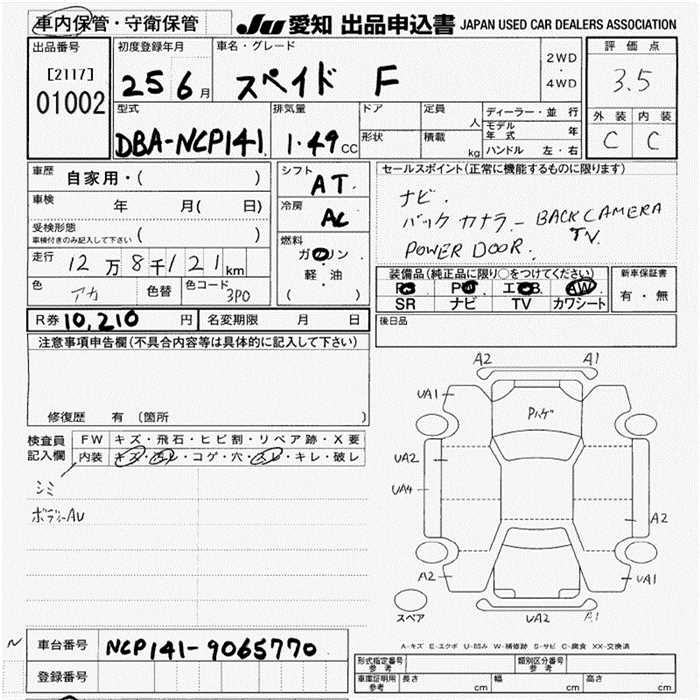 車内保管・守衛保管 JU 愛知 出品申込書 JAPAN USED CAR DEALERS ASSOCIATION
出品番号 初度登録年月 車名・グレード 評価点
[2117] 25 6月 スペイド F 2WD・4WD 3.5
01002
型式 排気量 ドア 定員 人 ディーラー・並行 外装 内装
DBA-NCP141 1.49cc 形状 積載 kg モデル年式 年 C C
ハンドル 左・右
車歴 自家用・( ) シフト AT セールスポイント(正常に機能するものに限ります)
車検 年 月( 日) 冷房 AC ナビ.
受検形態 車検付きのみ記入して下さい ( ) バックカナラー BACK CAMERA
TV.
走行 12万8千121km 燃料 ガソリン・軽・油 ( ) POWER DOOR.
色 アカ 色替 色コード 3P0
装備品(純正品に限り○をつけてください) 新車保証書
PS PW エアB. AW 有・無
SR ナビ TV カワシート
R券 10,210円 名変期限 月 日 後日品
注意事項申告欄(不具合内容等は具体的に記入して下さい)
修復歴 有 (箇所 )
検査員記入欄 FW キズ・飛石・ヒビ割・リペア跡・X要
内装 キズ・汚レ・コゲ・穴・スレ・キレ・破レ
シミ
ボディーAU
A2 A1
UA1
Pハゲ
UA2
UA4
A2
A2 UA1
スペア UA2 A1
A-キズ E-エクボ U-凹み W-補修跡 S-サビ C-腐食 XX-交換済
N 車台番号 NCP141-9065770
登録番号
形式指定番号 参考 類別区分番号 参考
車庫証明用 参考 長さ cm 幅 cm 高さ cm